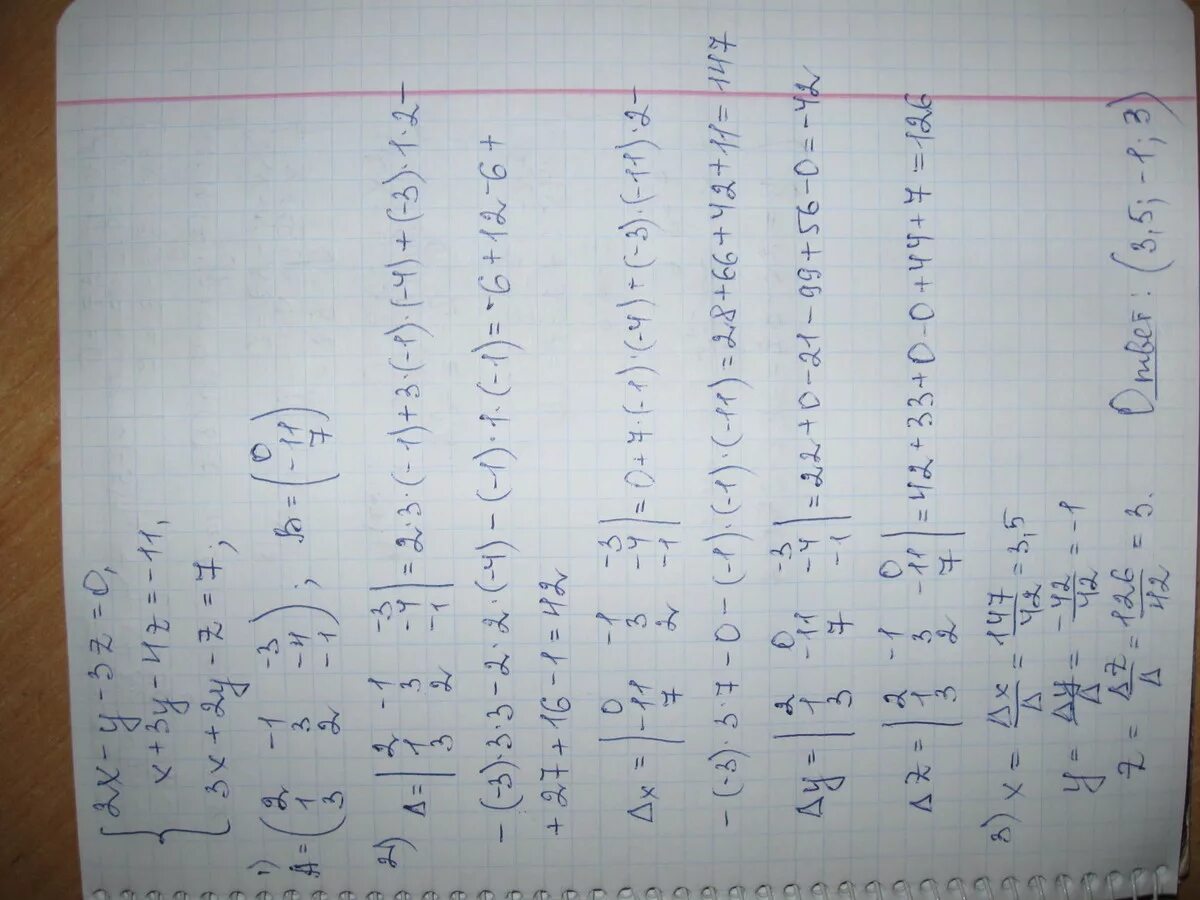 { 2x - y - 3z = 0,
x + 3y - 4z = -11,
3x + 2y - z = 7,
1)
A = (2 -1 -3
1 3 -4
3 2 -1) ; B = (0
-11
7)
2)
Δ = |2 -1 -3
1 3 -4
3 2 -1| = 2·3·(-1)+3·(-1)·(-4)+(-3)·1·2-
-(-3)·3·3-2·2·(-4)-(-1)·1·(-1)=-6+12-6+
+27+16-1=42
Δx = |0 -1 -3
-11 3 -4
7 2 -1| = 0+7·(-1)·(-4)+(-3)·(-11)·2-
-(-3)·3·7-0-(-1)·(-1)·(-11)=28+66+42+11=147
Δy = |2 0 -3
1 -11 -4
3 7 -1| = 22+0-21-99+56-0=-42
Δz = |2 -1 0
1 3 -11
3 2 7| = 42+33+0-0+44+7=126
3) x = Δx/Δ = 147/42 = 3,5
y = Δy/Δ = -42/42 = -1
z = Δz/Δ = 126/42 = 3.
Ответ: (3,5; -1; 3)